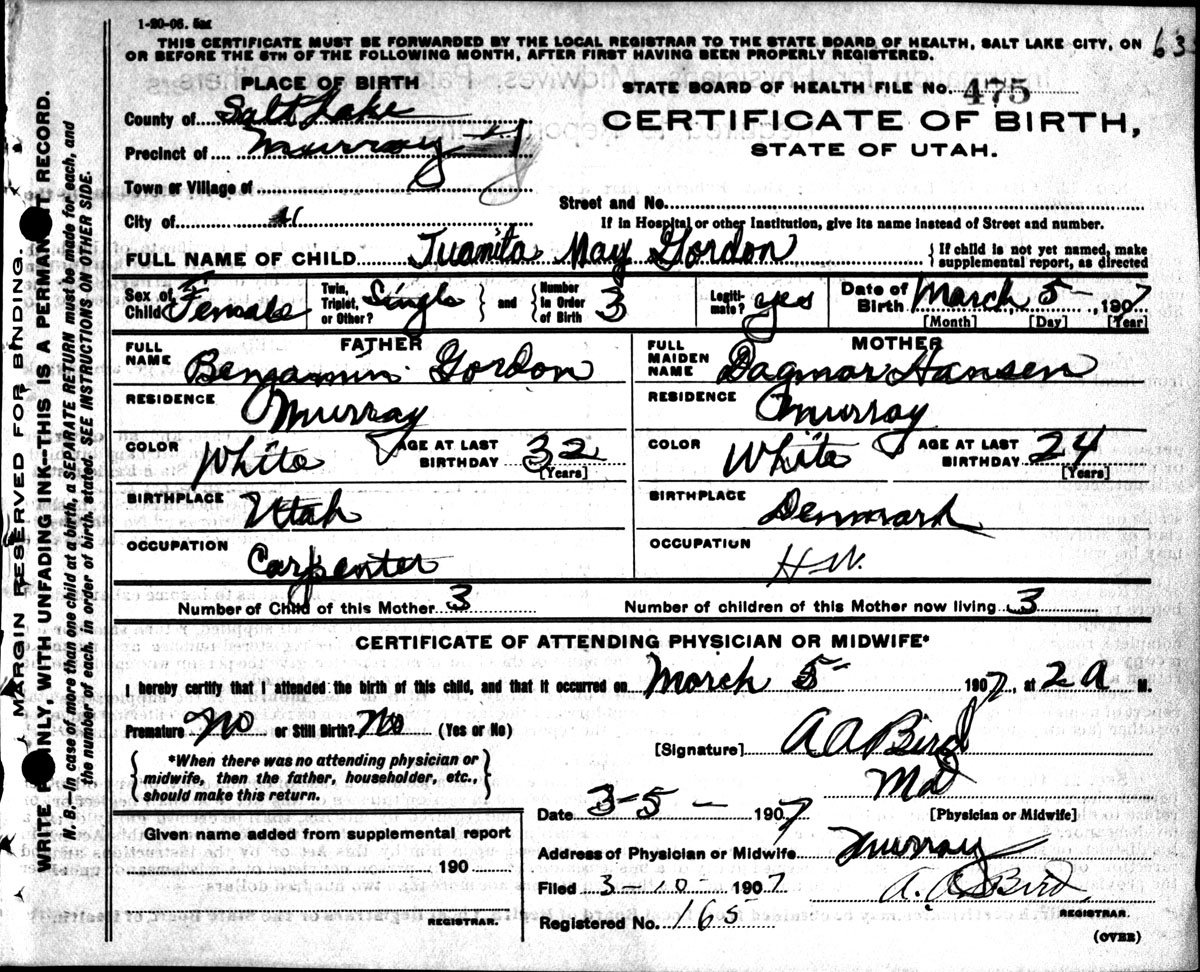 1-20-06. 5m
THIS CERTIFICATE MUST BE FORWARDED BY THE LOCAL REGISTRAR TO THE STATE BOARD OF HEALTH, SALT LAKE CITY, ON
OR BEFORE THE 5TH OF THE FOLLOWING MONTH, AFTER FIRST HAVING BEEN PROPERLY REGISTERED.
63
PLACE OF BIRTH
County of Salt Lake
Precinct of Murray
Town or Village of
City of
STATE BOARD OF HEALTH FILE No. 475
CERTIFICATE OF BIRTH,
STATE OF UTAH.
Street and No.
If in Hospital or other Institution, give its name instead of Street and number.
FULL NAME OF CHILD Juanita May Gordon {If child is not yet named, make
supplemental report, as directed
Sex of Child Female
Twin, Triplet, or Other? Single } and { Number in Order of Birth 3
Legitimate? yes
Date of Birth March 5 - , 1907
[Month] [Day] [Year]
FATHER
FULL NAME Benjamin Gordon
RESIDENCE Murray
COLOR White AGE AT LAST BIRTHDAY 32 [Years]
BIRTHPLACE Utah
OCCUPATION Carpenter
MOTHER
FULL MAIDEN NAME Dagmar Hansen
RESIDENCE Murray
COLOR White AGE AT LAST BIRTHDAY 24 [Years]
BIRTHPLACE Denmark
OCCUPATION H.W.
Number of Child of this Mother 3 Number of children of this Mother now living 3
CERTIFICATE OF ATTENDING PHYSICIAN OR MIDWIFE*
I hereby certify that I attended the birth of this child, and that it occurred on March 5 1907, at 2 A M.
Premature No or Still Birth? No (Yes or No)
{*When there was no attending physician or
midwife, then the father, householder, etc.,
should make this return.}
[Signature] A A Bird
Md
[Physician or Midwife]
Date 3-5- 1907
Address of Physician or Midwife Murray
Filed 3-10 1907 A. A. Bird
REGISTRAR.
Registered No. 165
(OVER)
Given name added from supplemental report
190
REGISTRAR.
MARGIN RESERVED FOR BINDING.
WRITE PLAINLY, WITH UNFADING INK—THIS IS A PERMANENT RECORD.
N. B.—In case of more than one child at a birth, a SEPARATE RETURN must be made for each, and
the number of each, in order of birth, stated. SEE INSTRUCTIONS ON OTHER SIDE.